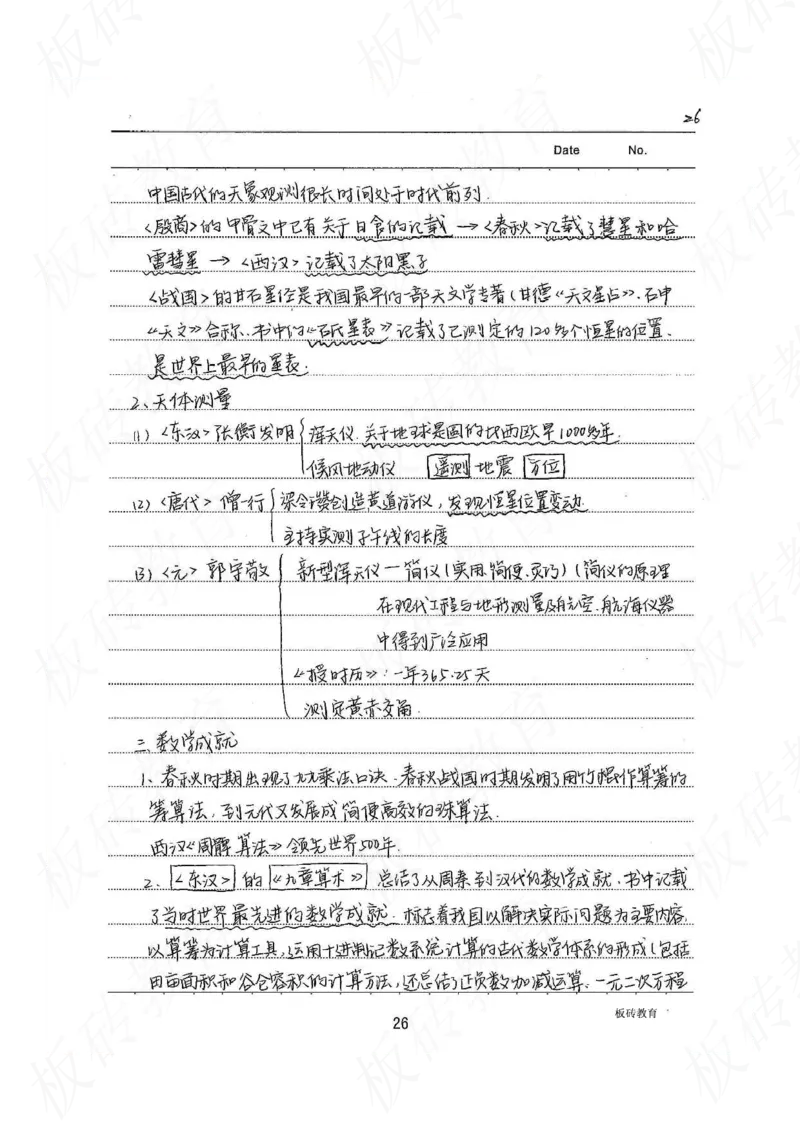 26
Date No.
中国古代的天象观测很长时间处于时代前列.
<殷商>的甲骨文中已有关于日食的记载 → <春秋>记载了彗星和哈
雷彗星 → <西汉>记载了太阳黑子
<战国>的甘石星经是我国最早的一部天文学专著(甘德《天文星占》.石申
《天文》合称.书中的《石氏星表》记载了已测定的120多个恒星的位置.
是世界上最早的星表.
2、天体测量
(1) <东汉>张衡发明 浑天仪.关于地球是圆的比西欧早1000多年.
候风地动仪 遥测 地震 方位
(2) <唐代> 僧一行 梁令瓒创造黄道游仪,发现恒星位置变动.
主持实测子午线的长度
(3) <元> 郭守敬 新型浑天仪—简仪(实用.简便.灵巧)(简仪的原理
在现代工程与地形测量及航空.航海仪器
中得到广泛应用
《授时历》:一年365.25天
测定黄赤交角.
三.数学成就
1、春秋时期出现了九九乘法口诀.春秋战国时期发明了用竹棍作算筹的
筹算法,到元代又发展成简便高效的珠算法.
西汉《周髀算法》领先世界500年.
2. <东汉> 的 《九章算术》 总结了从周秦到汉代的数学成就.书中记载
了当时世界最先进的数学成就.标志着我国以解决实际问题为主要内容,
以算筹为计算工具,运用十进制记数系统计算的古代数学体系的形成(包括
田亩面积和谷仓容积的计算方法,还总结了正负数加减运算、一元二次方程
板砖教育
26